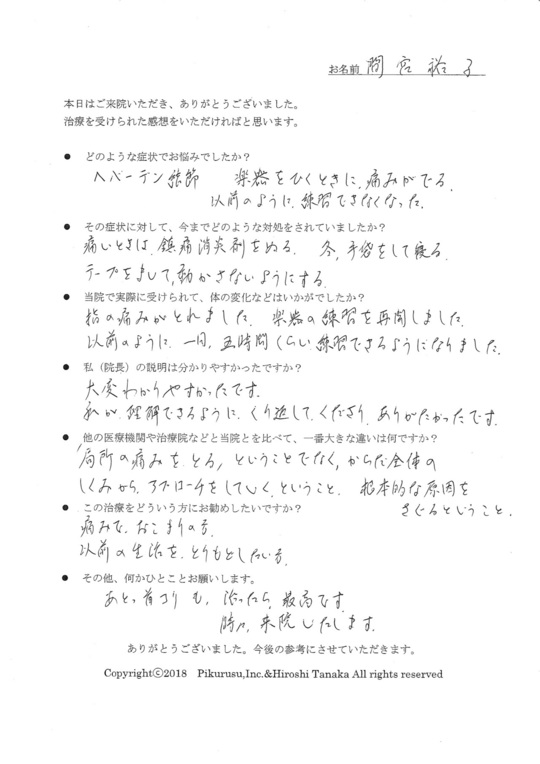 お名前 間宮裕子
本日はご来院いただき、ありがとうございました。
治療を受けられた感想をいただければと思います。
● どのような症状でお悩みでしたか？
ヘバーデン結節 楽器をひくときに、痛みがでる。
以前のように、練習できなくなった。
● その症状に対して、今までどのような対処をされていましたか？
痛いときは、鎮痛消炎剤をぬる。 冬、手袋をして寝る。
テープをまして、動かさないようにする。
● 当院で実際に受けられて、体の変化などはいかがでしたか？
指の痛みがとれました。 楽器の練習を再開しました。
以前のように、一日、五時間くらい練習できるようになりました。
● 私（院長）の説明は分かりやすかったですか？
大変わかりやすかったです。
私が、理解できるように、くり返して、くださり、ありがたかったです。
● 他の医療機関や治療院などと当院とを比べて、一番大きな違いは何ですか？
局所の痛みを、とる、ということでなく、からだ全体の
しくみから、アプローチをしていく、ということ、 根本的な原因を
さぐるということ。
● この治療をどういう方にお勧めしたいですか？
痛みで、おこまりの方、
以前の生活を、とりもどしたい方、
● その他、何かひとことお願いします。
あと、首コリも、治ったら、最高です。
時々、来院いたします。
ありがとうございました。今後の参考にさせていただきます。
Copyrightⓒ2018 Pikurusu,Inc.&Hiroshi Tanaka All rights reserved